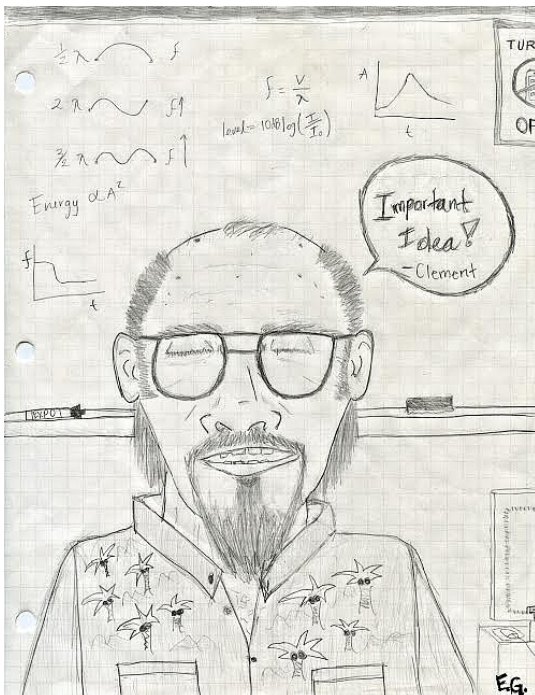 ½ λ f
2 λ f↑
3/2 λ f↑
Energy ∝ A²
f = v/λ
level = 10dB log(I/I₀)
A
t
f
t
TUR
OF
Important
Idea!
-Clement
EXPO
E.G.